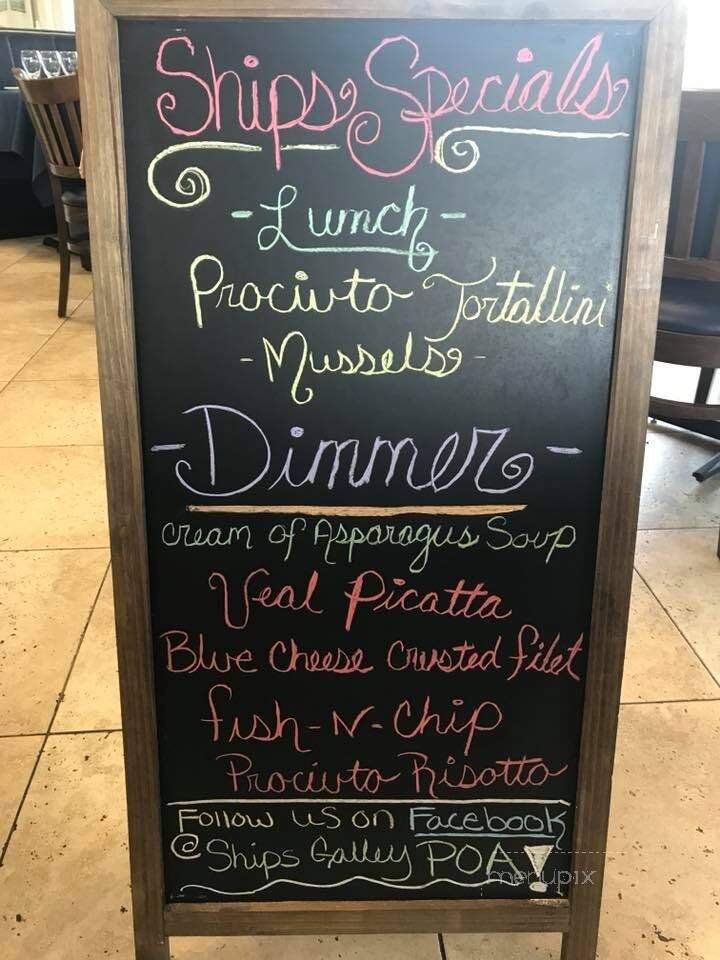 Ships Specials
-Lunch-
Prociuto Tortallini
-Mussels-
-Dinner-
cream of Asparagus Soup
Veal Picatta
Blue Cheese Crusted filet
fish-N-Chip
Prociuto Risotto
Follow us on Facebook
@ Ships Galley POA!
menupix